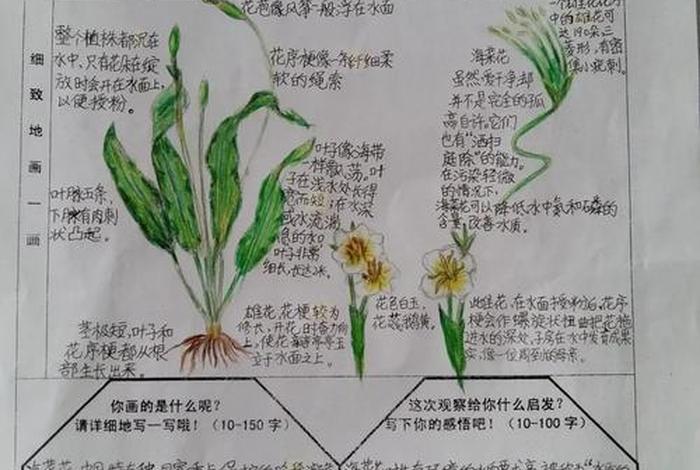 花苞像风筝一般浮在水面
整个植株都沉在
水中,只有花朵在绽
放时会开在水面上,
以便授粉。
花序梗像一条纤细柔
软的绳索
中的雄花可
达190朵三
菱形,有密
集小疣刺。
海菜花
虽然爱干净却
并不是完全的孤
高自许。它们
也有“洒扫
庭除”的能力。
在污染轻微
的情况下,
海菜花可以降低水中氮和磷的
含量,改善水质。
细致地画一画
叶子像海带
一样飘荡。叶
子在浅水处长得
宽而短;在水深
或水流湍
急的水中
叶子非常
细长,长达米。
叶脉五条,
下脉有肉刺
状凸起。
茎极短,叶子和
花序梗都从根
部生长出来。
雄花,花梗较为
修长,开花时奋力向
上,使花朵亭亭玉
立于水面之上。
花色白玉,
花蕊鹅黄。
此雌花,在水面授粉后,花序
梗会作螺旋状扭曲把花拖
进水的深处,子房在水中发育成果
实,像一位周到的母亲。
你画的是什么呢?
请详细地写一写哦!(10-150 字)
这次观察给你什么启发?
写下你的感悟吧!(10-100 字)